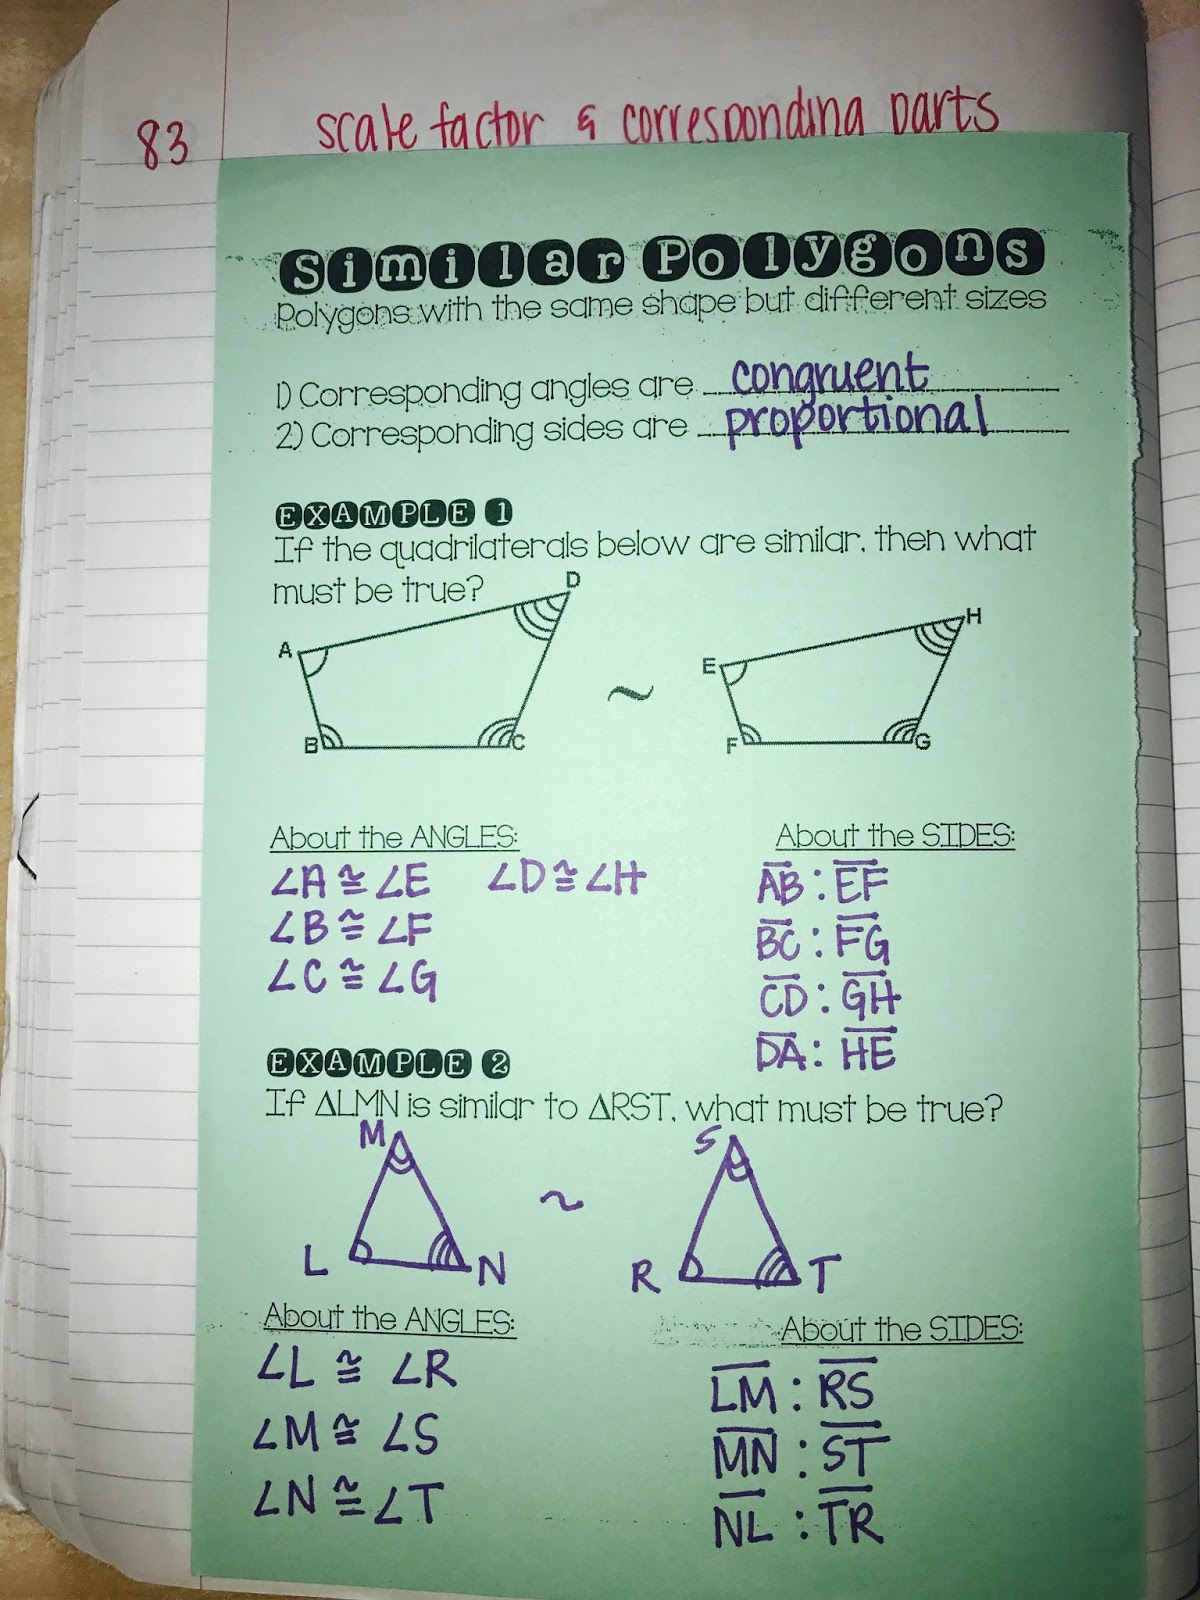 83 scale factor & corresponding parts
Similar Polygons
Polygons with the same shape but different sizes
1) Corresponding angles are congruent
2) Corresponding sides are proportional
EXAMPLE 1
If the quadrilaterals below are similar, then what
must be true?
D
A
B
C
~
H
E
F
G
About the ANGLES:
∠A ≅ ∠E ∠D ≅ ∠H
∠B ≅ ∠F
∠C ≅ ∠G
About the SIDES:
A̅B̅ : E̅F̅
B̅C̅ : F̅G̅
C̅D̅ : G̅H̅
D̅A̅ : H̅E̅
EXAMPLE 2
If ΔLMN is similar to ΔRST, what must be true?
M
L
N
~
S
R
T
About the ANGLES:
∠L ≅ ∠R
∠M ≅ ∠S
∠N ≅ ∠T
About the SIDES:
L̅M̅ : R̅S̅
M̅N̅ : S̅T̅
N̅L̅ : T̅R̅